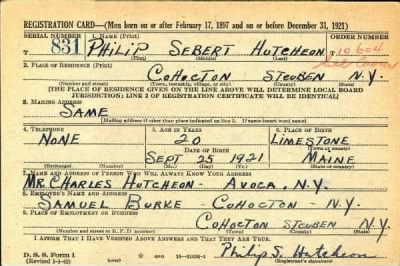 REGISTRATION CARD—(Men born on or after February 17, 1897 and on or before December 31, 1921)
SERIAL NUMBER 1. NAME (Print) ORDER NUMBER
T 831 PHILIP SEBERT HUTCHEON T 10,604
(First) (Middle) (Last)
2. PLACE OF RESIDENCE (Print)
COHOCTON STEUBEN N.Y.
(Number and street) (Town, township, village, or city) (County) (State)
[THE PLACE OF RESIDENCE GIVEN ON THE LINE ABOVE WILL DETERMINE LOCAL BOARD
JURISDICTION; LINE 2 OF REGISTRATION CERTIFICATE WILL BE IDENTICAL]
3. MAILING ADDRESS
SAME
[Mailing address if other than place indicated on line 2. If same insert word same]
4. TELEPHONE 5. AGE IN YEARS 6. PLACE OF BIRTH
NONE 20 LIMESTONE
DATE OF BIRTH (Town or county)
SEPT 25 1921 MAINE
(Exchange) (Number) (Mo.) (Day) (Yr.) (State or country)
7. NAME AND ADDRESS OF PERSON WHO WILL ALWAYS KNOW YOUR ADDRESS
MR. CHARLES HUTCHEON - AVOCA, N.Y.
8. EMPLOYER'S NAME AND ADDRESS
SAMUEL BURKE - COHOCTON - N.Y.
9. PLACE OF EMPLOYMENT OR BUSINESS
COHOCTON STEUBEN N.Y.
(Number and street or R. F. D. number) (Town) (County) (State)
I AFFIRM THAT I HAVE VERIFIED ABOVE ANSWERS AND THAT THEY ARE TRUE.
D. S. S. Form 1
(Revised 1-1-42) (over) Philip S. Hutcheon
(Registrant's signature)